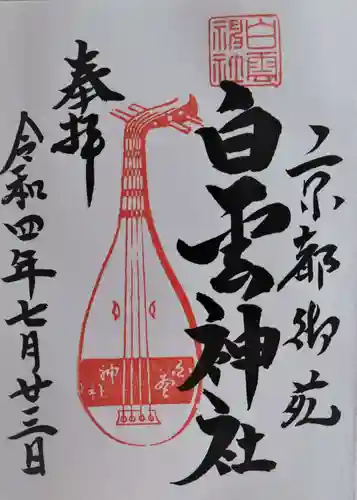 京都御苑
白雲神社
奉拝
令和四年七月廿三日
白雲
神社
白雲
神社